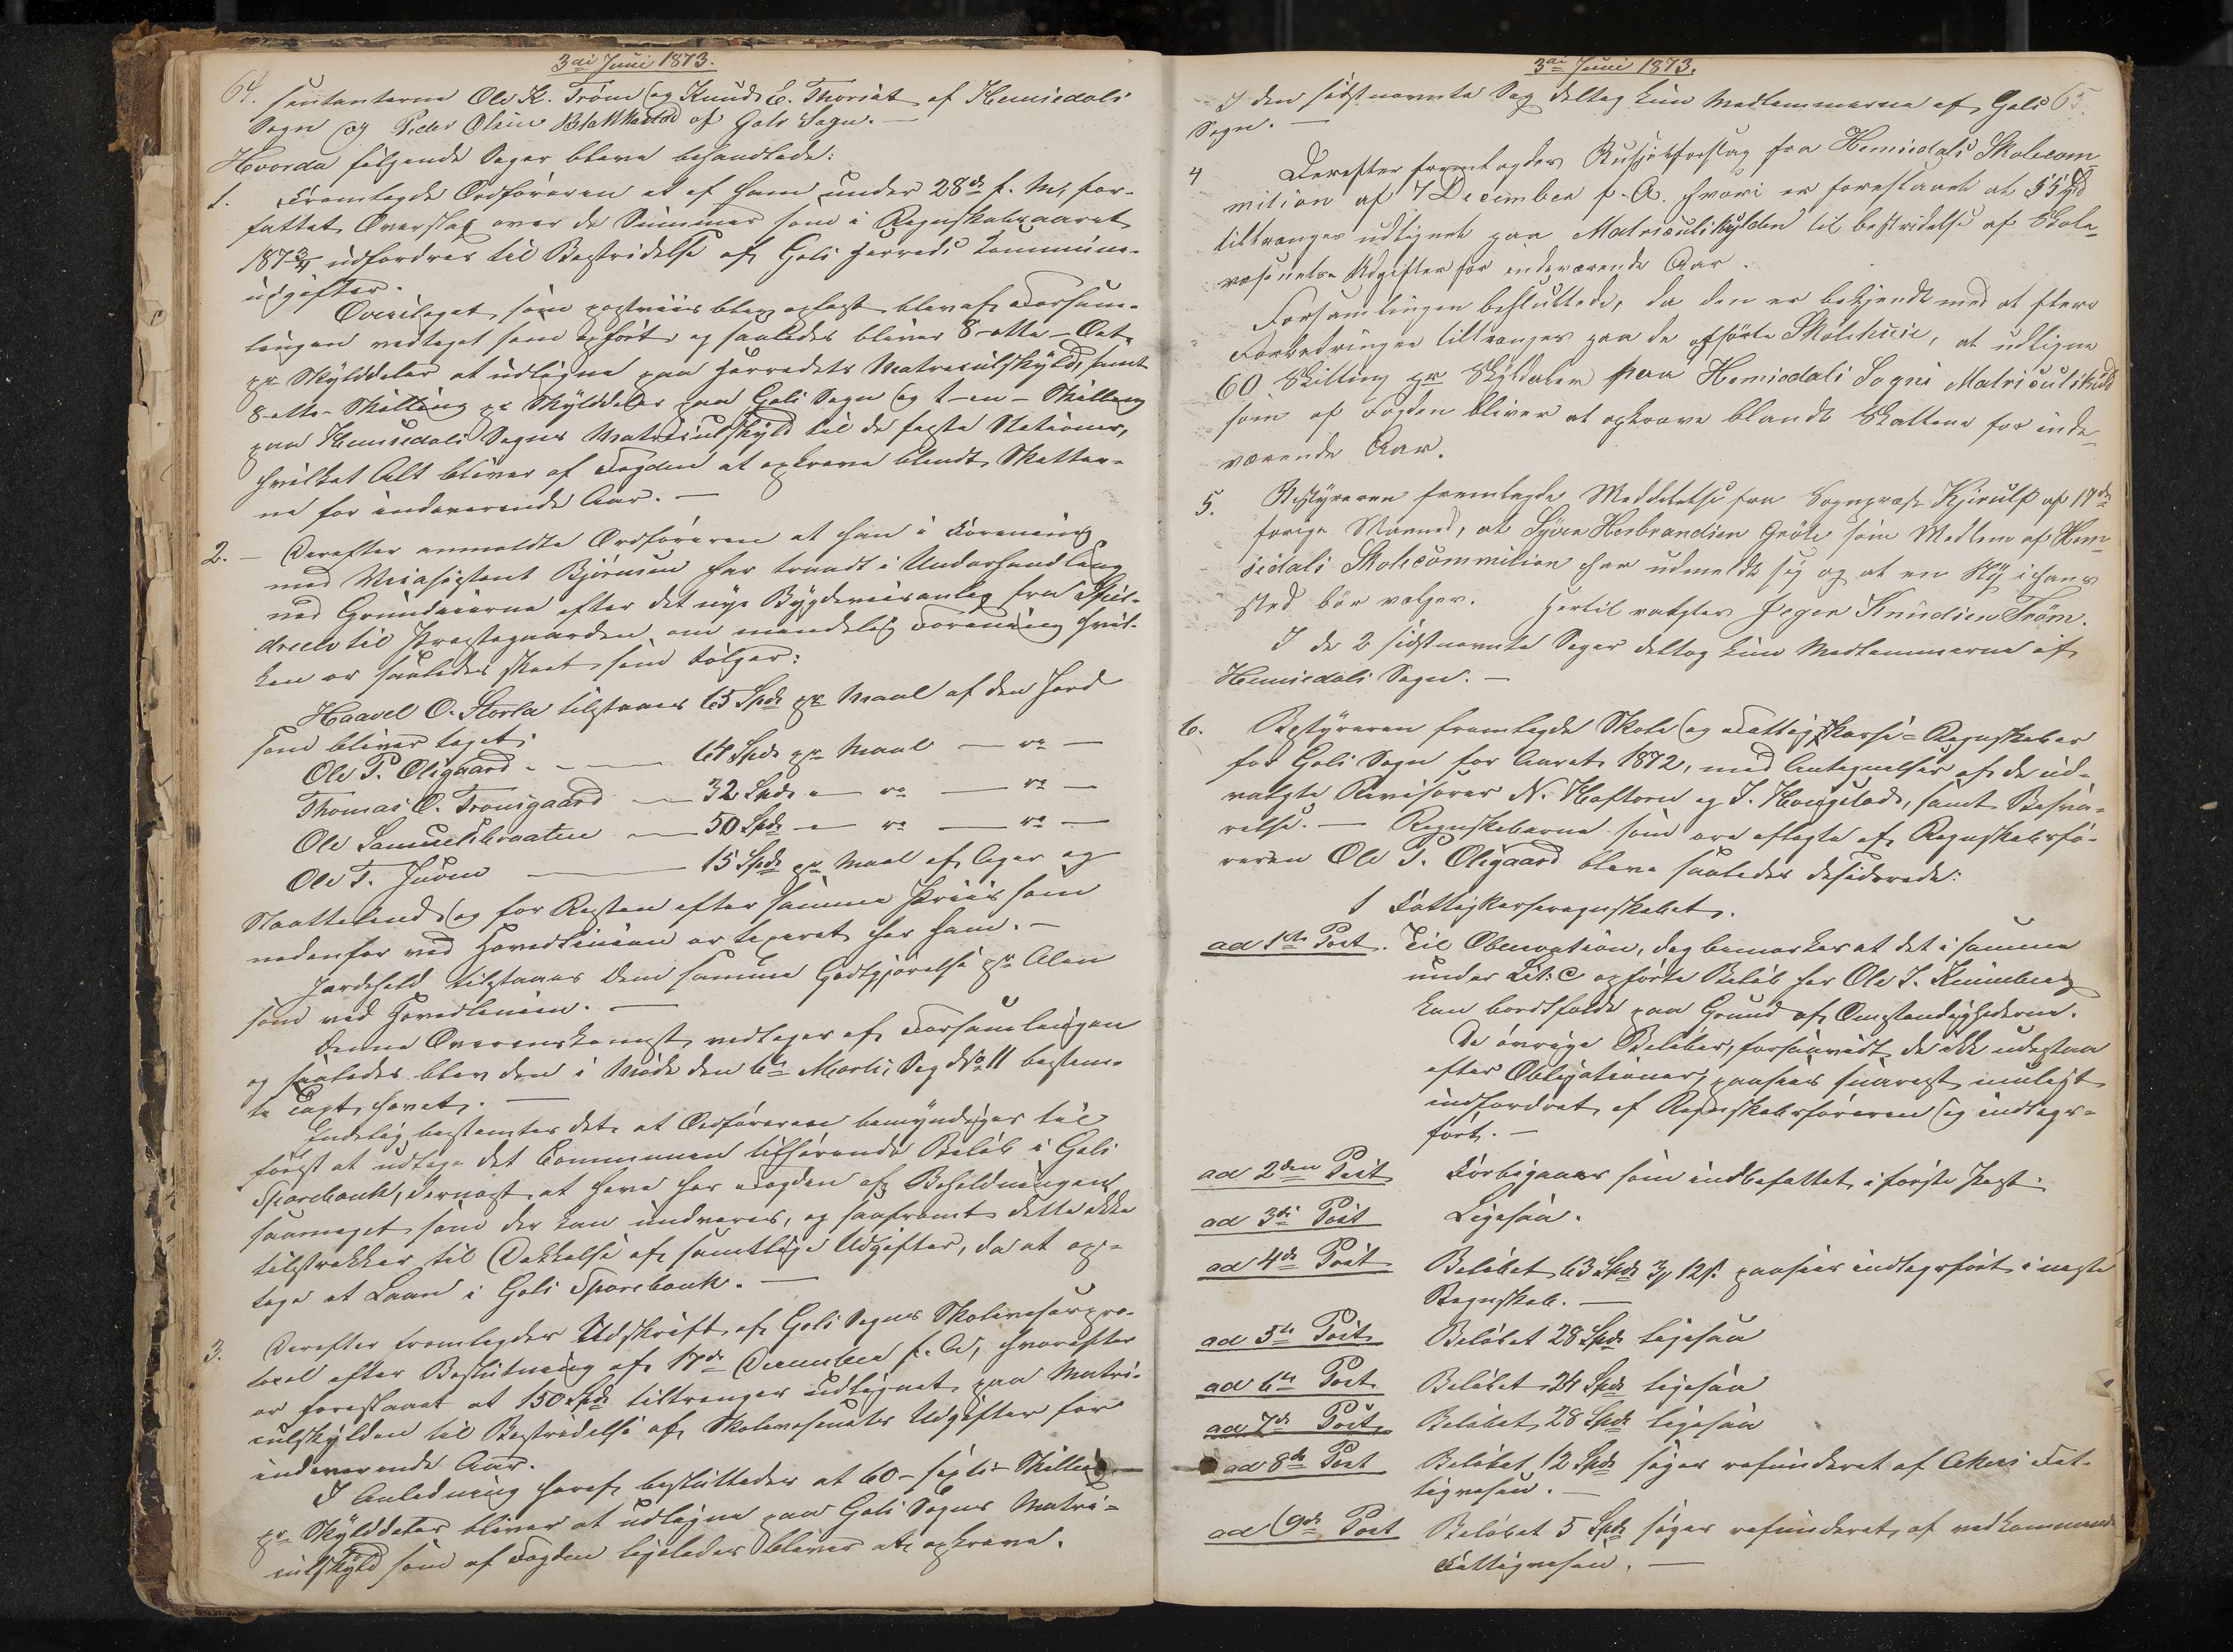 3die Juni 1873.
64. sentanterne Ole K. Trøm og Knud E. Thoriat af Hemsedals
Sogn og Peder Olsen Blakkestad af Gols Sogn. —
Hvorda følgende Sager bleve behandlede:
1. Fremlagde Ordføreren et af ham under 28de f. M. for-
fattet Overslag over de Summer som i Regnskabsaaret
1873/4 udfordres til Bestridelse af Gols Herreds Kommune-
udgifter.
Overslaget, som postviis blev oplæst blev af Forsam-
lingen vedtaget som opført og saaledes bliver 8 - otte - Ort
pr Skylddaler at udligne paa Herredets Matriculskyld, samt
8 - otte - Skilling pr Skylddaler paa Gols Sogn og 1 - en - Skilling
paa Hemsedals Sogns Matriculskyld til de faste Stationer,
hvilket Alt bliver af Fogden at opkræve blandt Skatter-
ne for indeværende Aar. —
2. — Derefter anmeldte Ordføreren at han i Forening
med Veiasistent Bjørnsen har traadt i Underhandling
med Grundeierne efter det nye Bygdeveisanlæg fra
til Præstegaarden, om mindelig Forening hvil-
ken er saaledes skeet som følger:
Haavel O. Storla tilstaaes 65 Spd pr Maal af den Jord
som bliver taget.
Ole P. Olsgaard — — 64 Spd pr Maal — " —
Thomas O. Trøusgaard — 32 Spd — " — " —
Ole Samuelsbraaten — 50 Spd — " — " —
Ole T. Juven — 15 Spd pr Maal af Ager og
Slaattelend og for Resten efter samme Priis som
nedenfor ved Hovedlinien er taxeret for ham. —
Jordehold tilstaaes dem samme Godtgjørelse pr Alen
som ved Hovedlinien. —
Denne Overenskomst vedtages af Forsamlingen
og saaledes blev den i Møde den 6te Marts, Sag No 11 bestem-
te Taxt hævet. —
Endelig bestemtes det, at Ordføreren bemyndiges til
først at udtage det Communen tilhørende Beløb i Gols
Sparebank, dernæst at hæve hos Fogden af Beholdningen
saameget som der kan undværes, og saafremt dette ikke
tilstrækker til Dækkelse af samtlige Udgifter, da at op-
tage et Laan i Gols Sparebank. —
3. Derefter fremlagdes Udskrift af Gols Sogns Skolevæsenspro-
tocol efter Beslutning af 17de December f. A., hvorefter
er foreslaaet at 150 Spd tiltrænges udlignet paa Matri-
culskylden til Bestridelse af Skolevæsenets Udgifter for
indeværende Aar.
I Anledning heraf besluttedes at 60 - sexti - Skilling
pr Skylddaler bliver at udligne paa Gols Sogns Matri-
culskyld som af Fogden ligeledes bliver at opkræve.
3die Juni 1873.
I den sidstnævnte Sag deltog kun Medlemmerne af Gols 65.
Sogn. —
4 Derefter fremlagdes Budsjetforslag fra Hemsedals Skolecom-
mision af 7 December f. A. hvori er foreslaaet at 55 Spd
tiltrænges udlignet paa Matriculskylden til bestridelse af Skole-
væsenets Udgifter for indeværende Aar.
Forsamlingen besluttede, da den er bekjendt med at flere
Forbedringer tiltrænges paa de opførte Skolehuse, at udligne
60 Skilling pr Skyldaler paa Hemsedals Sogns Matriculskyld
som af Fogden bliver at opkræve blandt Skattene for inde-
værende Aar.
5. Bestyreren fremlagde Meddelelse fra Sognepræst Kjerulf af 17de
forige Maaned, at Syver Herbrandsen Grøte som Medlem af Hem-
sedals Skolecommision har udmeldt sig og at en Ny i hans
sted bør vælges. Hertil valgtes Jeger Knudsen Trøm.
I de 2 sidstnævnte Sager deltog kun Medlemmerne af
Hemsedals Sogn. —
6. Bestyreren fremlagde Skole og Fattigkasse-Regnskaber
for Gols Sogn for Aaret 1872, med Antegnelser af de ud-
valgte Revisorer N. Haftorn og T. Haugstad, samt Besva-
relse. — Regnskaberne som ere aflagte af Regnskabsfø-
reren Ole P. Olsgaard bleve saaledes desiderede:
1 Fattigkasseregnskabet.
ad 1ste Post. Til Observation, dog bemærkes at det i samme
under Lit: C opførte Beløb hos Ole J.
kan bortfalde paa Grund af Omstændighederne.
De øvrige Beløber, forsaavidt de ikke udestaa
efter Obligationer, paasees snarest muligt
indfordret af Regnskabsføreren og indtægts-
ført. —
ad 2den Post Forbigaaes som indbefattet i første Post.
ad 3die Post Ligesaa.
ad 4de Post Beløbet 63 Spd 3/ 12ß. paasees indtægtsført i næste
Regnskab. —
ad 5te Post Beløbet 28 Spd ligesaa
ad 6te Post Beløbet 24 Spd ligesaa
ad 7de Post Beløbet 28 Spd ligesaa
ad 8de Post Beløbet 12 Spd søges refunderet af Akers Fat-
tigvæsen. —
ad 9de Post Beløbet 5 Spd søges refunderet af vedkommende
Fattigvæsen. —